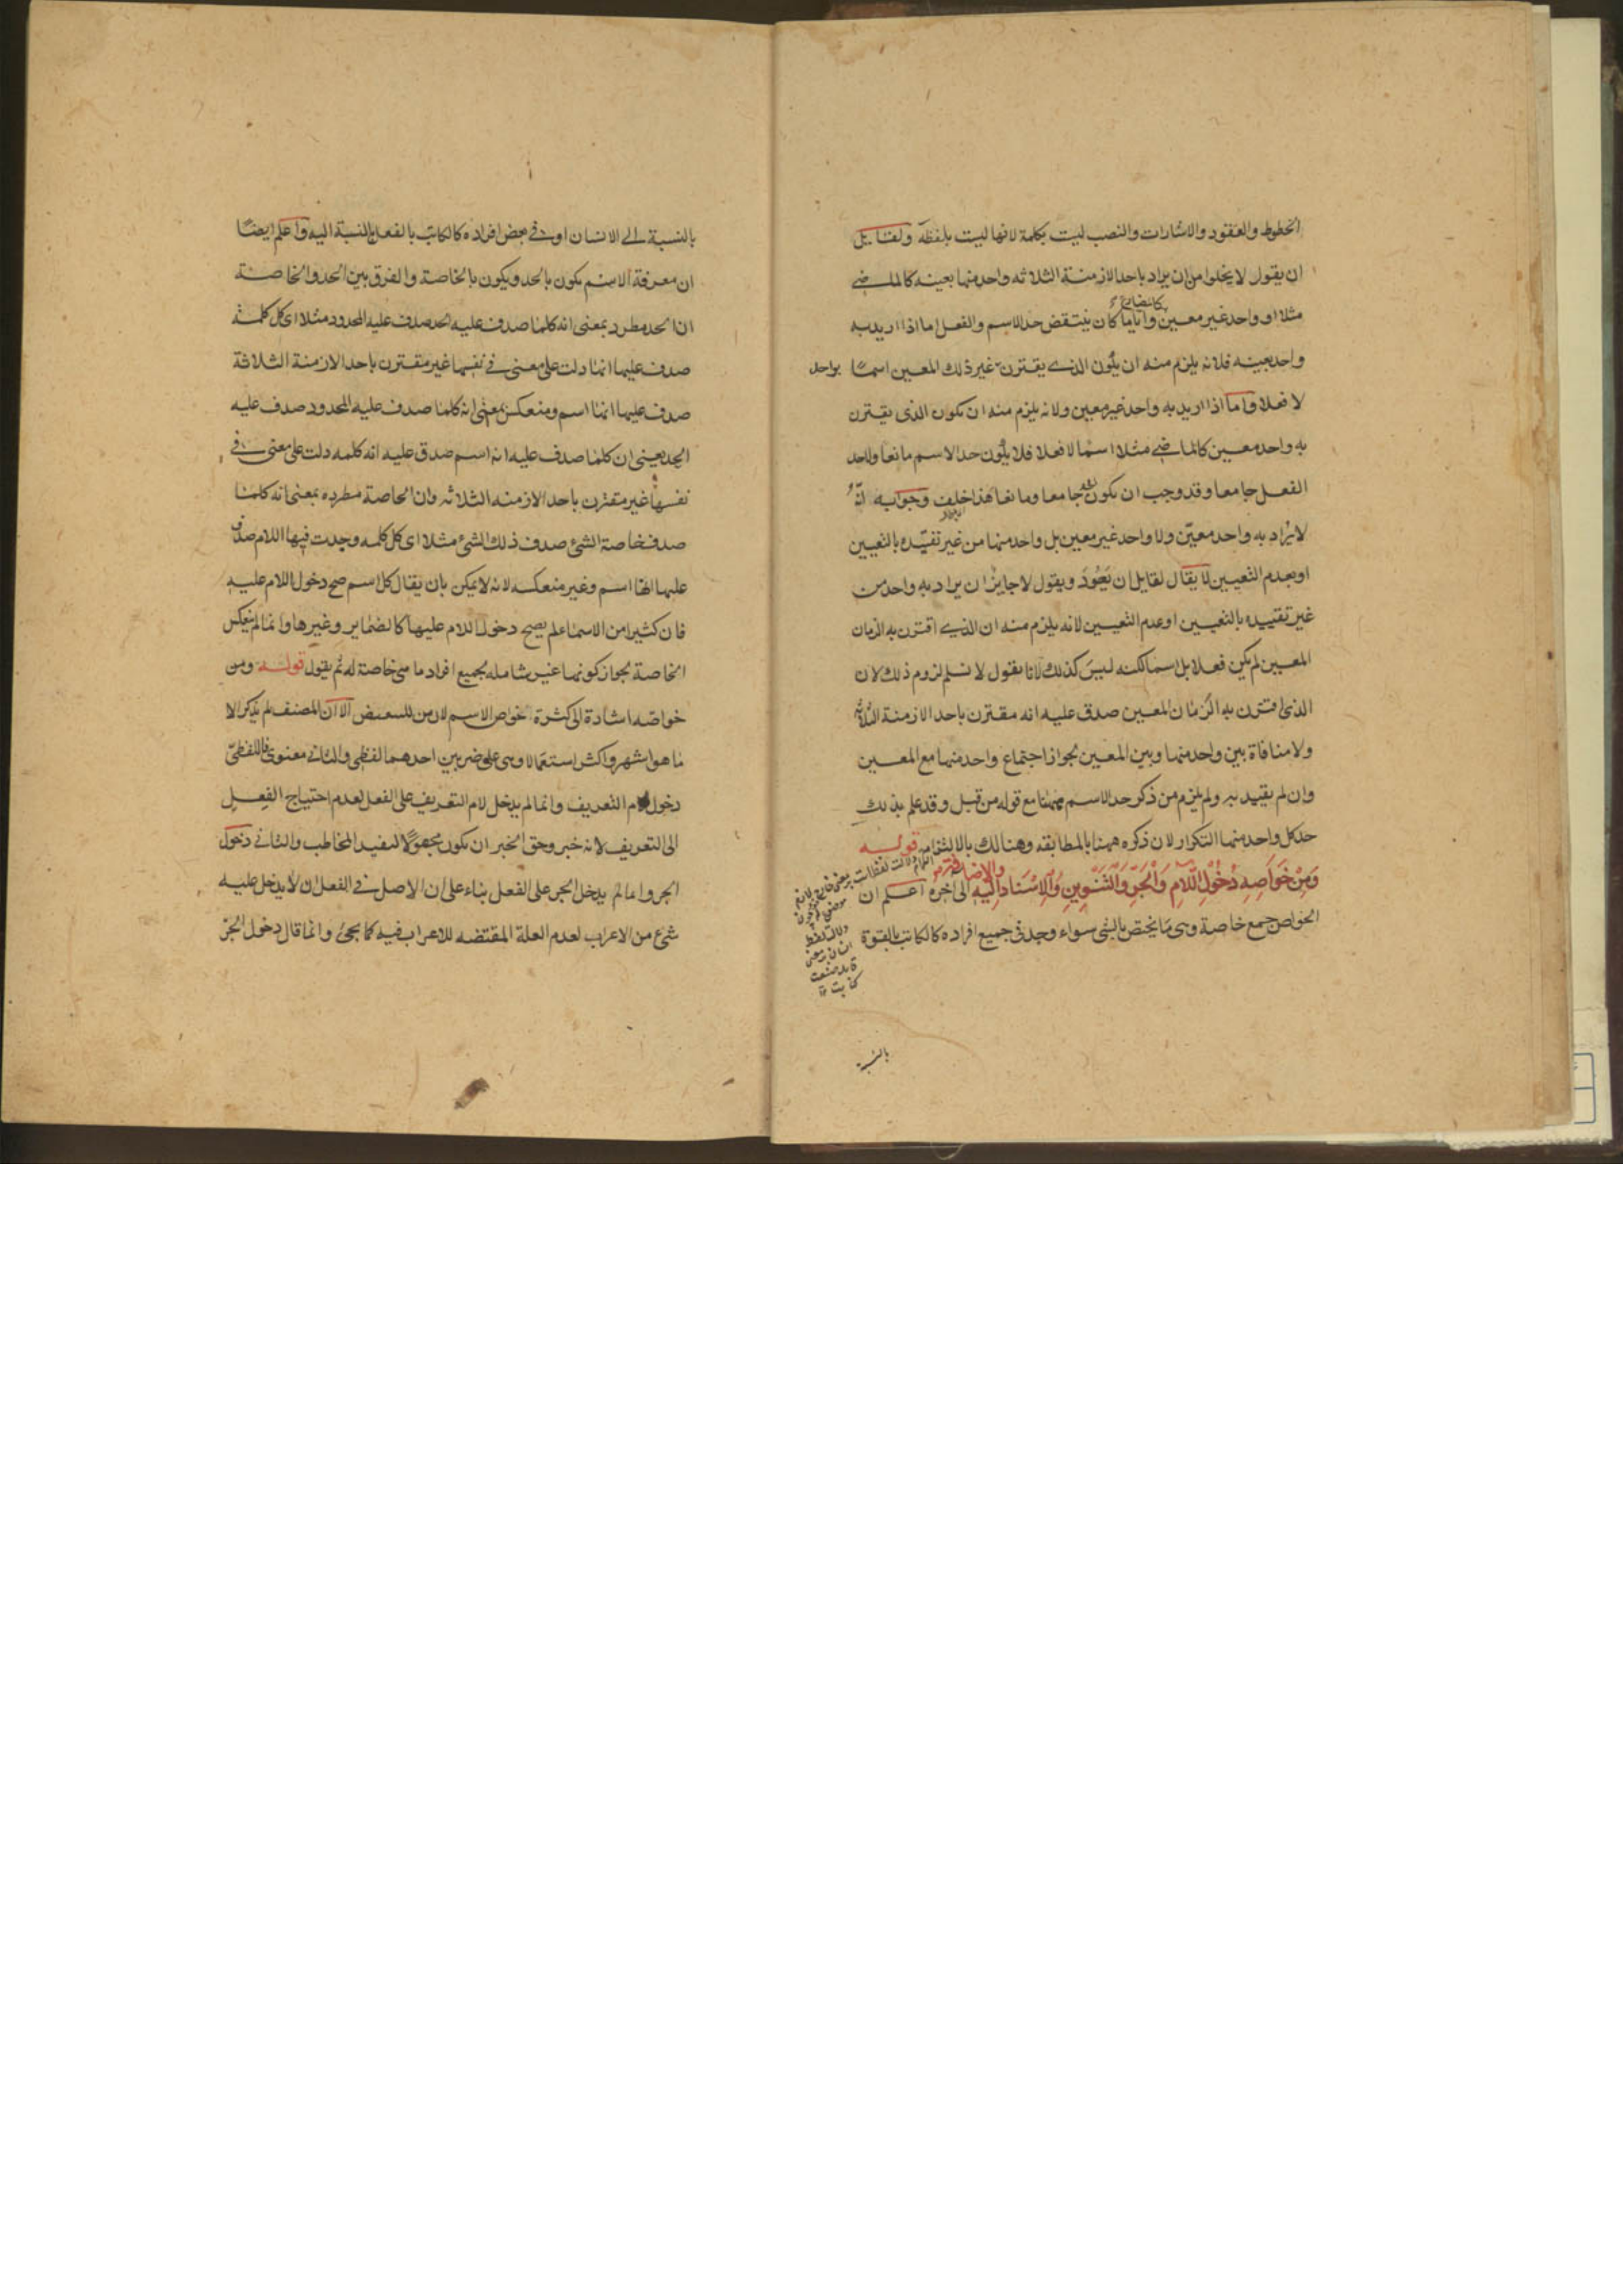 الخطوط والعقود والاشارات والنصب ليست بكلمة لانها ليست بلفظه ولقايل
ان يقول لا يخلوا من ان يراد باحد الازمنة الثلاثه واحد منها بعينه كالماضي
مثلا او واحد غير معين وايا ما كان ينتقض حد الاسم والفعل اما اذا اريد به
واحد بعينه فلانه يلزم منه ان يكون الذي يقترن غير ذلك المعين اسما
بواحد
لا فعلا واما اذا اريد به واحد غير معين ولانه يلزم منه ان يكون الذي يقترن
به واحد معين كالماضي مثلا اسما لا فعلا فلا يكون حد الاسم مانعا ولا حد
الفعل جامعا وقد وجب ان يكون جامعا ومانعا هذا خلف وجوابه انه
لا يراد به واحد معين ولا واحد غير معين بل واحد منها من غير تقيده بالتعيين
او بعدم التعيين لا يقال لقايل ان يعود ويقول لا جايز ان يراد به واحد من
غير تقييده بالتعيين او عدم التعيين لانه يلزم منه ان الذي اقترن به الزمان
المعين لم يكن فعلا بل اسما لكنه ليس كذلك لانا نقول لا نسلم لزوم ذلك لان
الذي اقترن به الزمان المعين صدق عليه انه مقترن باحد الازمنة الثلاثه
ولا منافاة بين واحد منها وبين المعين لجواز اجتماع واحد منها مع المعين
وان لم يقيد به ولم يلزم من ذكر حد الاسم ههنا مع قوله من قبل وقد علم بذلك
حد كل واحد منها التكرار لان ذكره ههنا بالمطابقه وهنالك بالالتزام قوله
ومن خواصه دخول اللام والجر والتنوين والاسناد اليه والاضافة الى اخره اعلم ان
الخواص جمع خاصة وهي ما يختص بالشئ سواء وجد في جميع افراده كالكاتب بالقوة
بالنسبة
بالنسبة الى الانسان او في بعض افراده كالكاتب بالفعل بالنسبة اليه واعلم ايضا
ان معرفة الاسم يكون بالحد ويكون بالخاصة والفرق بين الحد والخاصة
ان الحد مطرد بمعنى انه كلما صدق عليه الحد صدق عليه المحدود مثلا اى كل كلمة
صدق عليها انها دلت على معنى في نفسها غير مقترن باحد الازمنة الثلاثة
صدق عليها انها اسم ومنعكس بمعنى انه كلما صدق عليه المحدود صدق عليه
الحد يعنى ان كلما صدق عليه انه اسم صدق عليه انه كلمه دلت على معنى في
نفسها غير مقترن باحد الازمنه الثلاثه وان الخاصة مطرده بمعنى انه كلما
صدق خاصة الشئ صدق ذلك الشئ مثلا اى كل كلمه وجدت فيها اللام صدق
عليها انها اسم وغير منعكسه لانه لا يمكن بان يقال كل اسم صح دخول اللام عليه
فان كثيرا من الاسماء لم يصح دخول اللام عليها كالضماير وغيرها وانما لم ينعكس
الخاصة لجواز كونها غير شامله لجميع افراد ما هى خاصة له ثم يقول قوله ومن
خواصه اشارة الى كثرة خواص الاسم لان من للتبعيض الا ان المصنف لم يذكر الا
ما هو اشهر واكثر استعمالا وهى على ضربين احدهما لفظي والثاني معنوى فاللفظي
دخول لام التعريف وانما لم يدخل لام التعريف على الفعل لعدم احتياج الفعل
الى التعريف لانه خبر وحق الخبر ان يكون مجهولا ليفيد المخاطب والثاني دخول
الجر وانما لم يدخل الجر على الفعل بناء على ان الاصل في الفعل ان لا يدخل عليه
شئ من الاعراب لعدم العلة المقتضه للاعراب فيه كما يجئ وانما قال دخول الجر